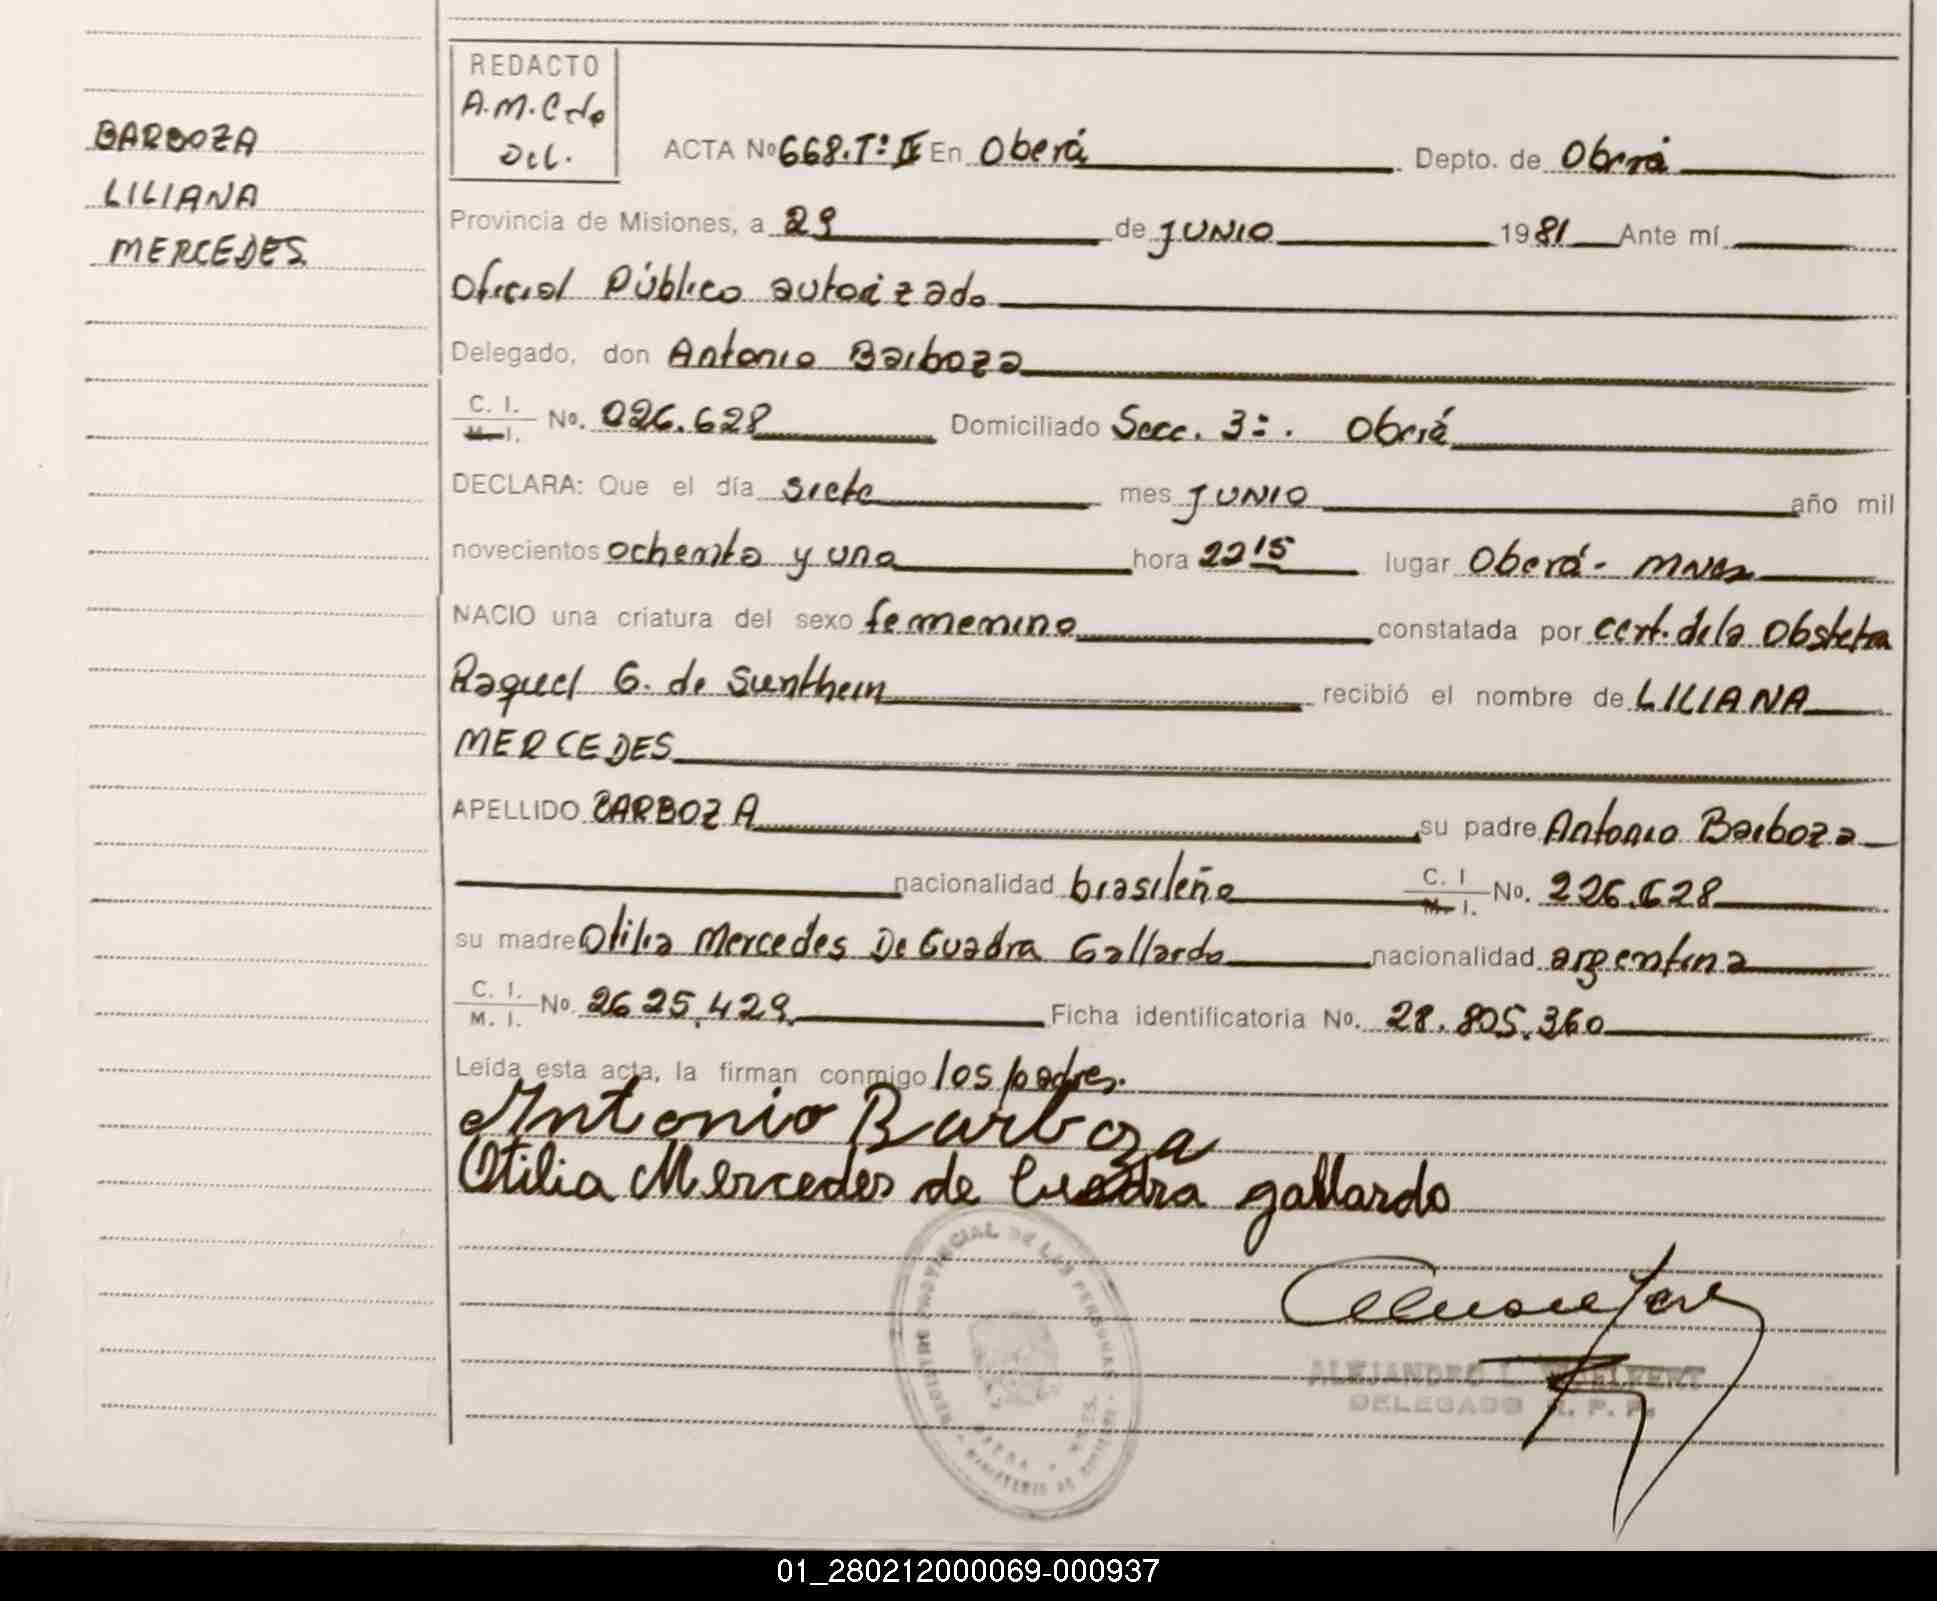 BARBOZA
LILIANA
MERCEDES
REDACTO
A.M.C de
Del.
ACTA Nº 668.Tº II En Oberá Depto. de Oberá
Provincia de Misiones, a 29 de JUNIO 1981 Ante mí
Oficial Público autorizado
Delegado, don Antonio Barboza
C. I. M. I. No. 026.628 Domiciliado Secc. 3ª. Oberá
DECLARA: Que el día siete mes JUNIO año mil
novecientos ochenta y uno hora 22 15 lugar Oberá - Mnes
NACIO una criatura del sexo femenino constatada por cert. de la Obstetra
Raquel G. de Sunthem recibió el nombre de LILIANA
MERCEDES
APELLIDO BARBOZA su padre Antonio Barboza
nacionalidad brasileña C. I M. I. No. 226.628
su madre Otilia Mercedes De Cuadra Gallardo nacionalidad argentina
C. I. M. I. No. 2625.429 Ficha identificatoria No. 28.805.360
Leída esta acta, la firman conmigo los padres.
Antonio Barboza
Otilia Mercedes de Cuadra gallardo
PROVINCIAL DE LAS PERSONAS
ALEJANDRO L.
DELEGADO R. P. P.
01_280212000069-000937